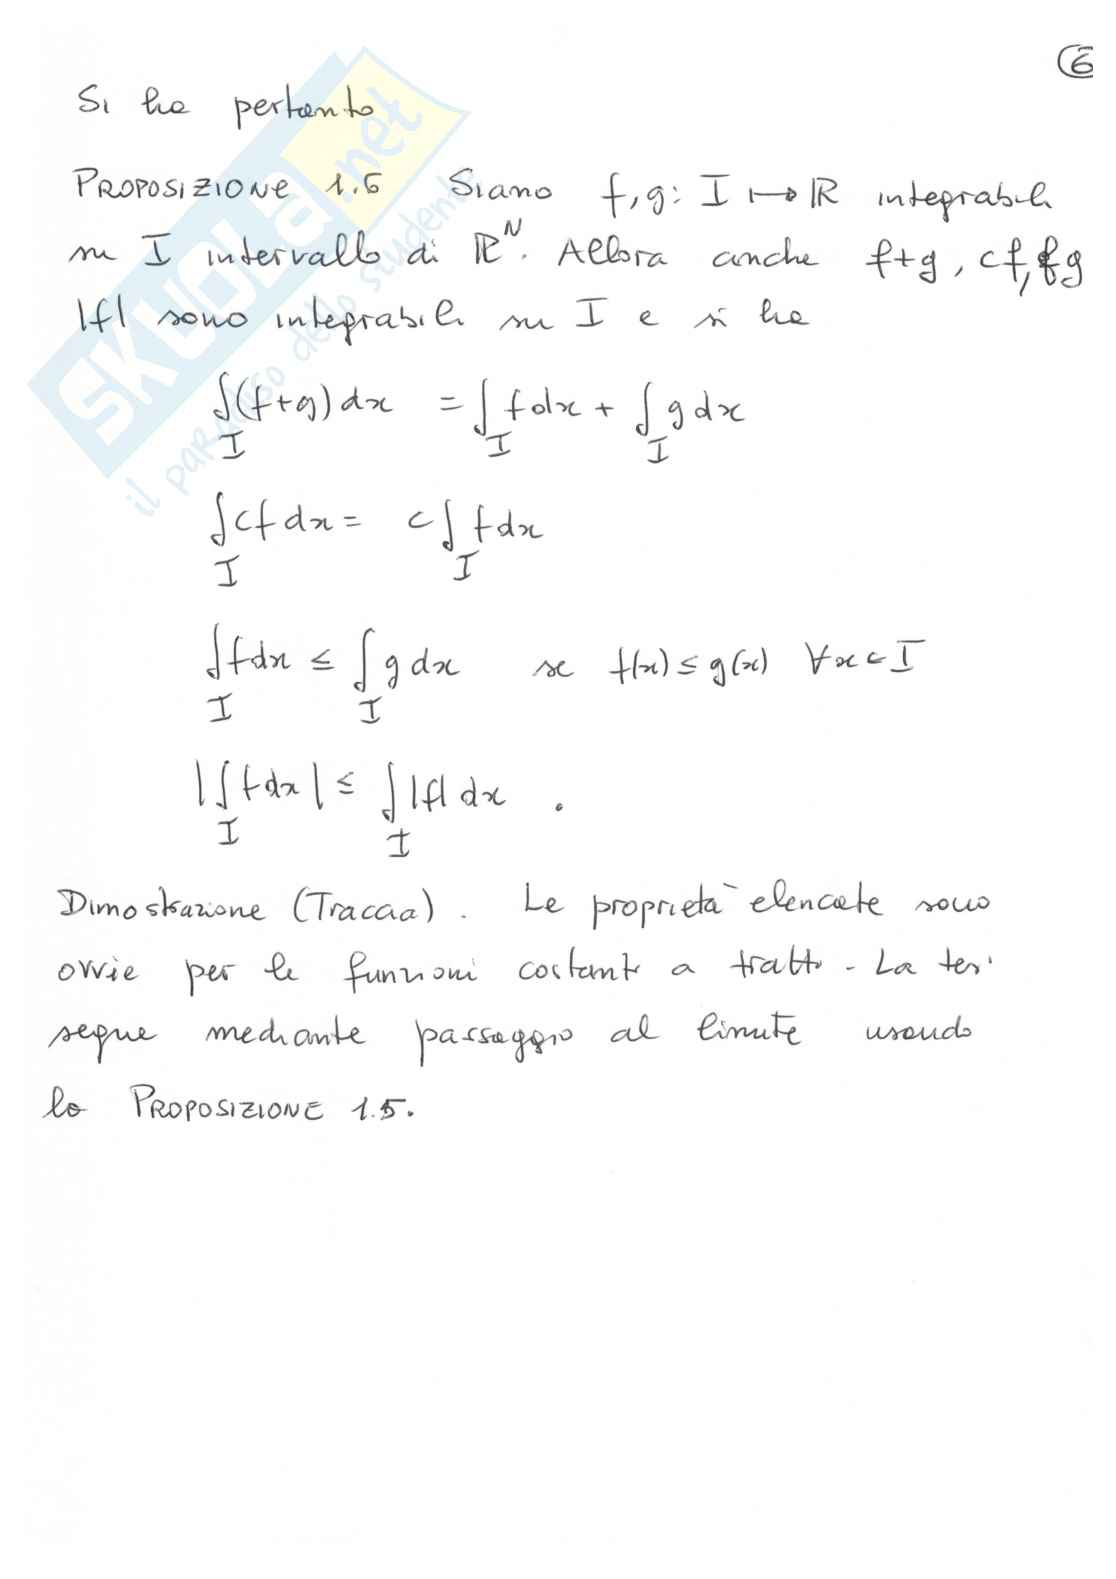 6
Si ha pertanto
PROPOSIZIONE 1.6 Siano f,g: I ↦ ℝ integrabili
su I intervallo di ℝᴺ. Allora anche f+g, cf, fg
|f| sono integrabili su I e si ha
∫_I (f+g) dx = ∫_I f dx + ∫_I g dx
∫_I cf dx = c ∫_I f dx
∫_I f dx ≤ ∫_I g dx se f(x) ≤ g(x) ∀x ∈ I
|∫_I f dx| ≤ ∫_I |f| dx .
Dimostrazione (Traccia). Le proprietà elencate sono
ovvie per le funzioni costanti a tratti. La tesi
segue mediante passaggio al limite usando
la PROPOSIZIONE 1.5.
SKUOLA.net
il paradiso dello studente